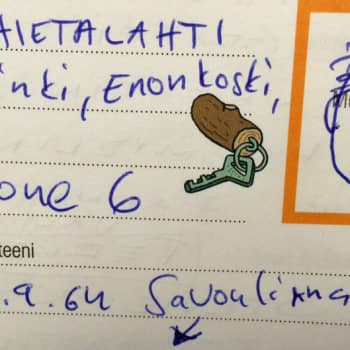 HIETALAHTI
inki, Enonkoski,
one 6
teeni
.9.64 Savonlinna